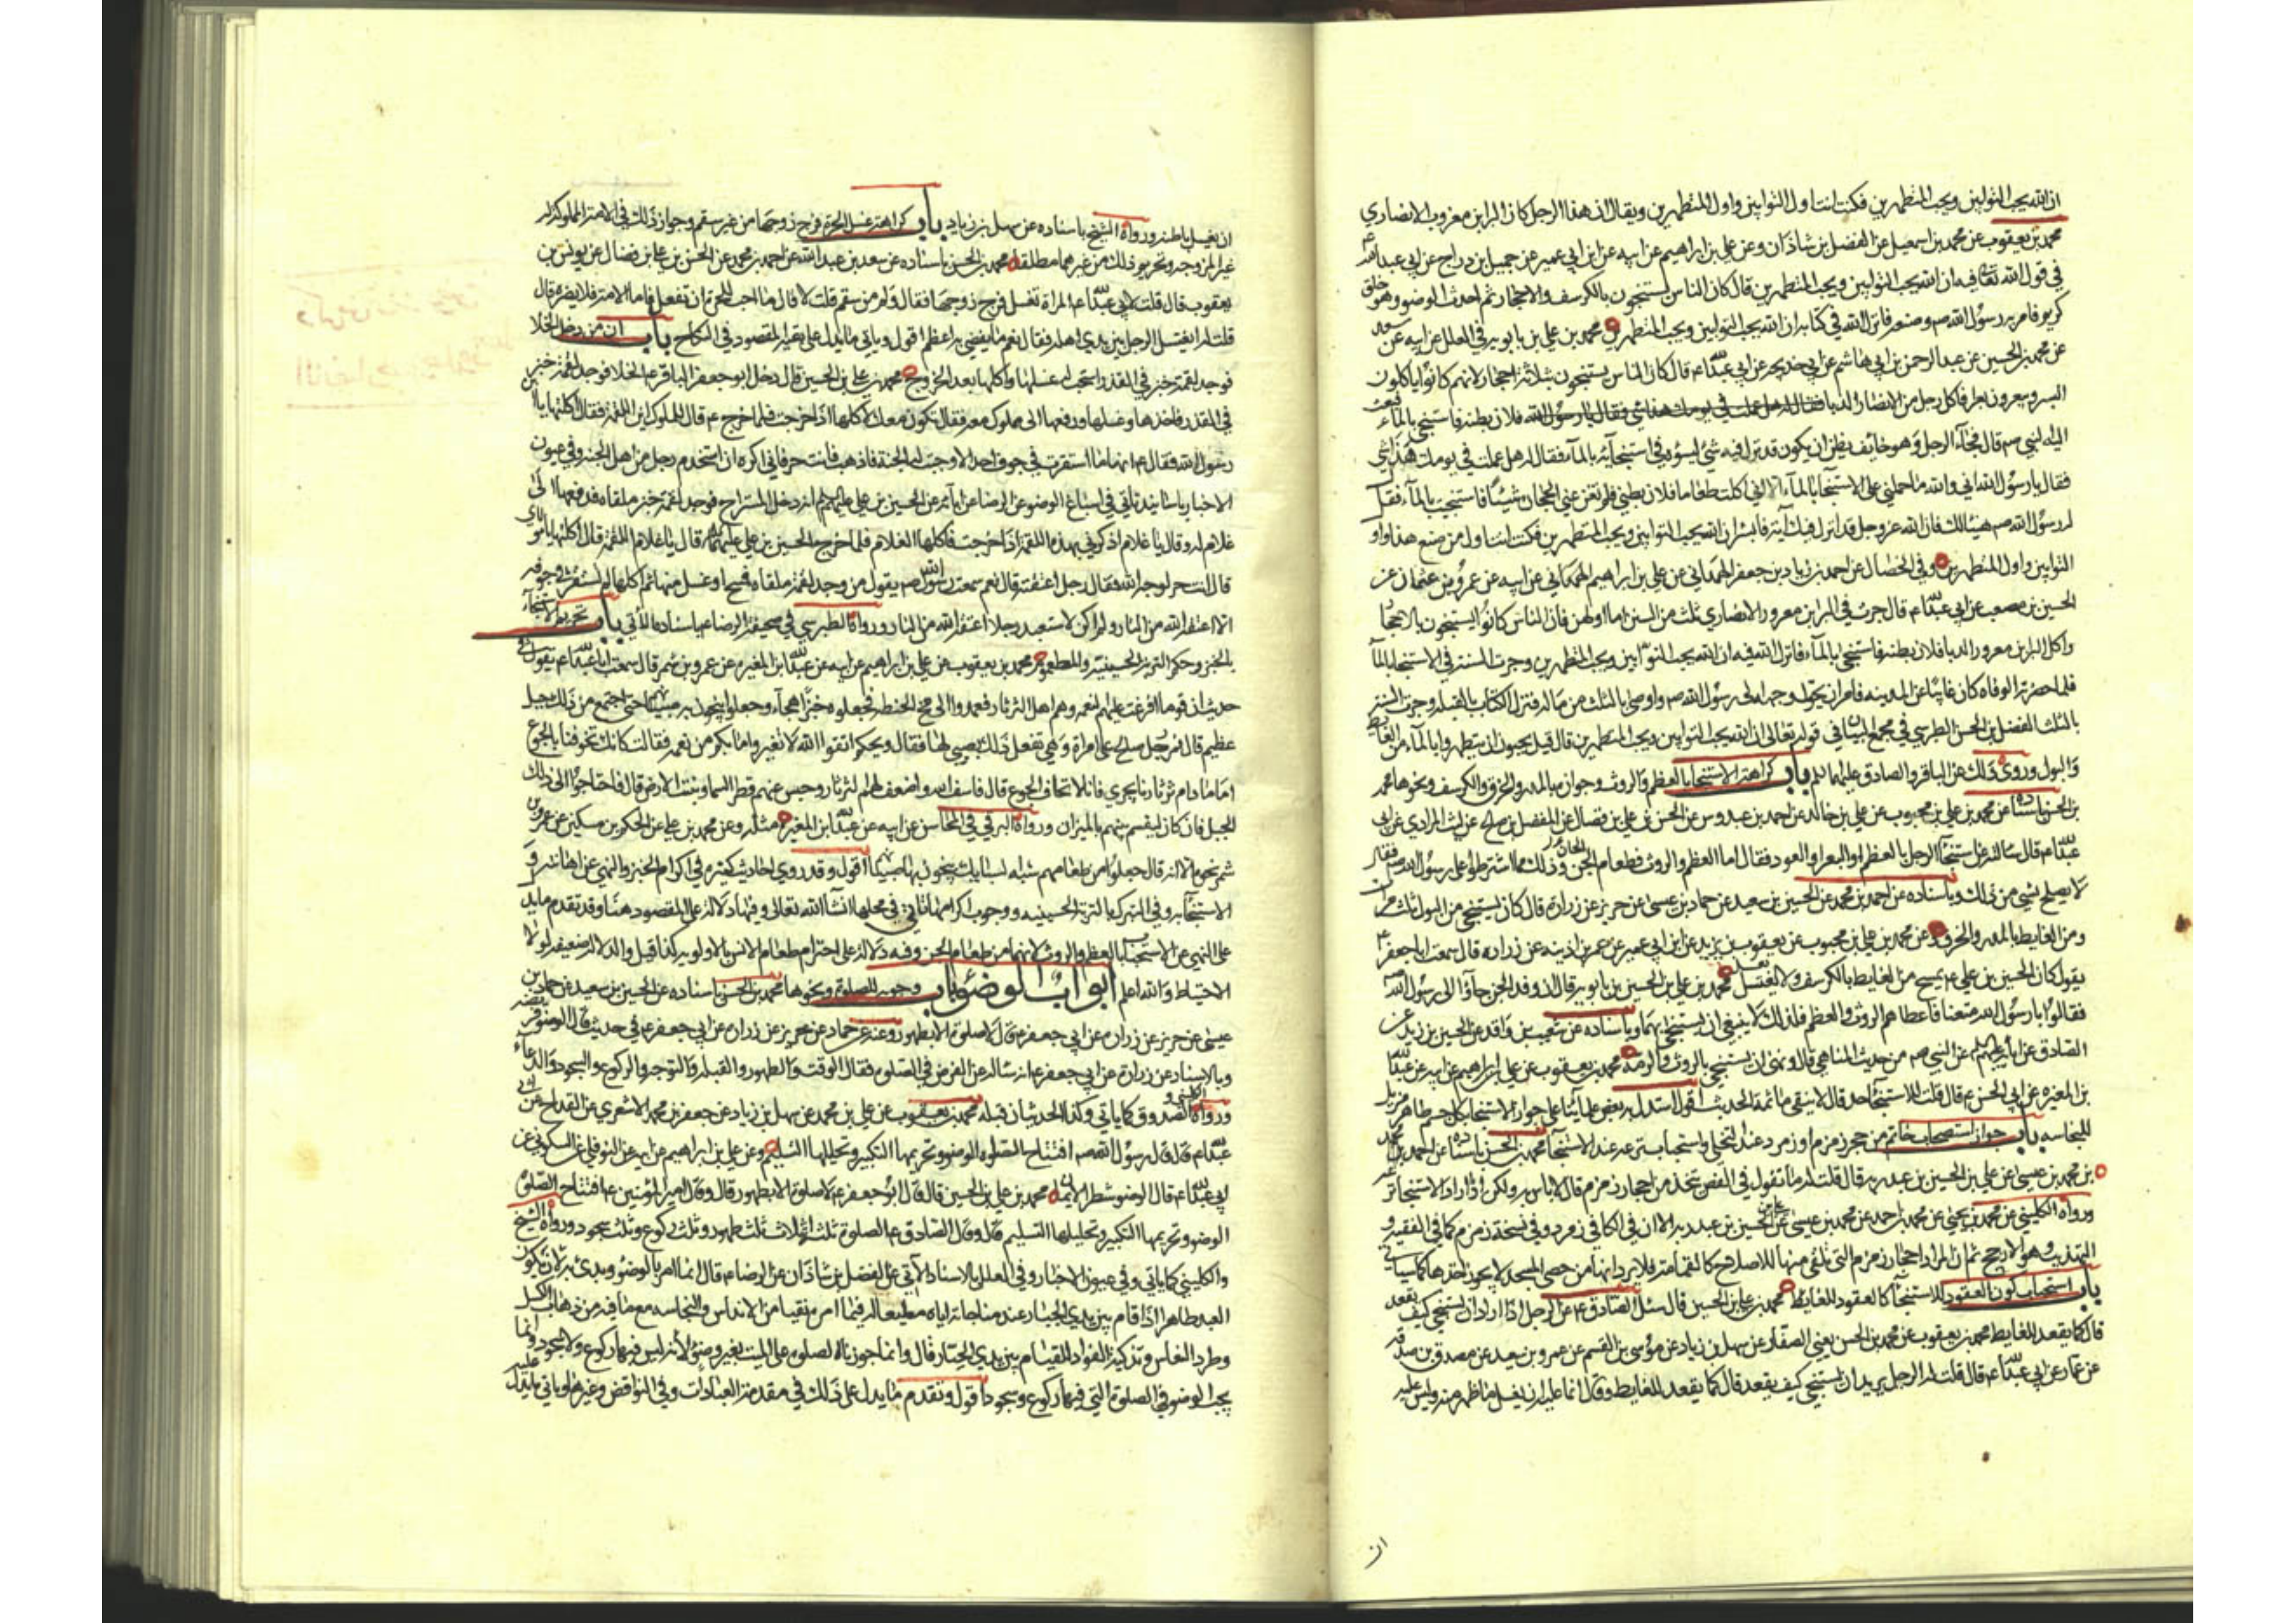 ان الله يحب التوابين ويحب المتطهرين فكنت انت اول التوابين واول المتطهرين ويقال ان هذا الرجل كان البراء بن معرور الانصاري
محمد بن يعقوب عن محمد بن اسمعيل عن الفضل بن شاذان وعن علي بن ابراهيم عن ابيه عن ابن ابي عمير عن جميل بن دراج عن ابي عبد الله
في قول الله ان الله يحب التوابين ويحب المتطهرين قال كان الناس يستنجون بالكرسف والاحجار ثم احدث الوضوء وهو خلق
كريم فامر به رسول الله ص وصنعه فانزل الله في كتابه ان الله يحب التوابين ويحب المتطهرين محمد بن علي بن بابويه في العلل عن ابيه عن سعد
عن محمد بن الحسين عن عبد الرحمن بن ابي هاشم عن ابي خديجة عن ابي عبد الله ع قال كان الناس يستنجون بثلاثة احجار لانهم كانوا ياكلون
البسر فاكل رجل من الانصار الدبا فلان بطنه فاستنجى بالماء فبعث
اليه النبي ص قال فجاء الرجل وهو خائف يظن ان يكون قد نزل فيه شيء يسوءه في استنجائه بالماء فقال له هل عملت في يومك هذا شيئا
فقال يا رسول الله اني والله ما حملني على الاستنجاء بالماء الا اني اكلت طعاما فلان بطني فلم تغن عني الحجارة شيئا فاستنجيت بالماء فقال
له رسول الله ص هنيئا لك فان الله عز وجل قد انزل فيك آية فابشر ان الله يحب التوابين ويحب المتطهرين فكنت انت اول من صنع هذا واول
التوابين واول المتطهرين وفي الخصال عن احمد بن زياد بن جعفر الهمداني عن علي بن ابراهيم عن ابيه عن عمرو بن عثمان عن
الحسين بن مصعب عن ابي عبد الله ع قال جرت في البراء بن معرور الانصاري ثلث من السنن اما اولهن فان الناس كانوا يستنجون بالاحجار
واكل البراء بن معرور الدبا فلان بطنه فاستنجى بالماء فانزل الله فيه ان الله يحب التوابين ويحب المتطهرين وجرت السنة في الاستنجاء بالماء
فلما حضرته الوفاة كان غائبا عن المدينة فامر ان يحول وجهه الى رسول الله ص واوصى بالثلث من ماله فنزل الكتاب بالقبلة وجرت السنة
بالثلث الفضل بن الحسن الطبرسي في مجمع البيان في قوله تعالى ان الله يحب التوابين ويحب المتطهرين قال قيل يحبون ان يتطهروا بالماء من الغائط
والبول وروي ذلك عن الباقر والصادق عليهما السلم باب كراهة الاستنجاء بالعظم والروث وجوازه بالمدر والخرق والكرسف ونحوها محمد
بن الحسن باسناده عن محمد بن علي بن محبوب عن علي بن خالد عن احمد بن عبدوس عن الحسن بن علي بن فضال عن المفضل بن صالح عن ليث المرادي عن ابي
عبد الله ع قال سالته عن استنجاء الرجل بالعظم او البعر او العود فقال اما العظم والروث فطعام الجن وذلك مما اشترطوا على رسول الله ص فقال
لا يصلح بشيء من ذلك وباسناده عن احمد بن محمد عن الحسين بن سعيد عن حماد بن عيسى عن حريز عن زرارة قال كان يستنجي من البول ثلث مرات
ومن الغايط بالمدر والخرق وعن محمد بن علي بن محبوب عن يعقوب بن يزيد عن ابن ابي عمير عن عمر بن اذينه عن زراره قال سمعت ابا جعفر ع
يقول كان الحسين بن علي ع يمسح من الغايط بالكرسف ولا يغتسل محمد بن علي بن الحسين بن بابويه قال ان وفد الجن جاؤا الى رسول الله
فقالوا يا رسول الله متعنا فاعطاهم الروث والعظم فلذلك لا ينبغي ان يستنجى بهما وباسناده عن شعيب بن واقد عن الحسين بن زيد عن
الصادق عن آبائه عن النبي ص من حديث المناهي قال ونهى ان يستنجى بالروث والرمة محمد بن يعقوب عن علي بن ابراهيم عن ابيه عن عبد الله
بن المغيره عن ابي الحسن ع قال قلت للاستنجاء حد قال لا ينقى ما ثمة الحديث اقول استدل به بعض علمائنا على جواز الاستنجاء بكل جسم طاهر مزيل
للنجاسه باب جواز استصحاب خاتم من حجر زمزم او زمرد عند التخلي واستحباب نزعه عند الاستنجاء محمد بن الحسن باسناده عن احمد بن محمد
بن محمد بن عيسى عن علي بن الحسين بن عبد ربه قال قلت له ما تقول في الفص تتخذ من احجار زمزم قال لا باس به ولكن اذا اراد الاستنجاء نزعه
ورواه الكليني عن محمد بن يحيى عن محمد بن احمد عن محمد بن عيسى عن علي بن الحسين بن عبد ربه الا ان في الكافي زمرد وفي نسخة زمزم كما في الفقيه و
التهذيب وهو الارجح ثم ان المراد احجار زمزم التي تلقى منها للاصلاح كالقمامة فلا يرد انها من حصى المسجد لا يجوز اخذها كما سياتي
باب استحباب كون القعود للاستنجاء كالقعود للغايط محمد بن علي بن الحسين قال سئل الصادق ع عن الرجل اذا اراد ان يستنجي كيف يقعد
قال كما يقعد للغايط محمد بن يعقوب عن محمد بن الحسن يعني الصفار عن سهل بن زياد عن موسى بن القسم عن عمرو بن سعيد عن مصدق بن صدقه
عن عمار عن ابي عبد الله ع قال قلت له الرجل يريد ان يستنجي كيف يقعد قال كما يقعد للغايط وقال انما عليه ان يغسل ما ظهر منه وليس عليه
ان
ان يغسل باطنه ورواه الشيخ باسناده عن سهل بن زياد باب كراهة غسل الحرة فرج زوجها من غير سقم وجواز ذلك في الامة المملوكة له
غير المزوجه وتحريم ذلك من غيرهما مطلقا محمد بن الحسن باسناده عن سعد بن عبد الله عن احمد بن محمد عن الحسن بن علي بن فضال عن يونس بن
يعقوب قال قلت لابي عبد الله ع المراة تغسل فرج زوجها فقال ولم من سقم قلت لا قال ما احب للحرة ان تفعل فاما الامة فلا يضره قال
قلت له ايغتسل الرجل بين يدي اهله فقال نعم ما يفضي به اعظم اقول وياتي ما يدل على بقية المقصود في النكاح باب ان من دخل الخلا
فوجد لقمة خبز في القذر استحب له غسلها واكلها بعد الخروج محمد بن علي بن الحسين قال دخل ابو جعفر الباقر ع الخلا فوجد لقمة خبز
في القذر فاخذها وغسلها ودفعها الى مملوك معه فقال تكون معك لآكلها اذا خرجت فلما خرج ع قال للمملوك اين اللقمة فقال اكلتها يا ابن
رسول الله فقال ع انها ما استقرت في جوف احد الا وجبت له الجنة فاذهب فانت حر فاني اكره ان استخدم رجل من اهل الجنه وفي عيون
الاخبار باسانيد تاتي في اسباغ الوضوء عن الرضا عن آبائه عن الحسين بن علي عليهم السلم انه دخل المستراح فوجد لقمة خبز ملقاه فدفعها الى
غلام له وقال يا غلام اذكرني بهذه اللقمة اذا خرجت فاكلها الغلام فلما خرج الحسين بن علي قال يا غلام اللقمة قال اكلتها يا مولاي
قال انت حر لوجه الله فقال رجل اعتقته قال نعم سمعت رسول الله ص يقول من وجد لقمة ملقاه فمسح او غسل منها ثم اكلها لم تستقر في جوفه
الا اعتقه الله من النار ولم اكن لاستعبد رجلا اعتقه الله من النار ورواه الطبرسي في صحيفة الرضا ع باسناده الآتي باب تحريم الاستنجاء
بالخبز وحكم التربة الحسينية والمطعوم محمد بن يعقوب عن علي بن ابراهيم عن ابيه عن عبد الله بن المغيره عن عمرو بن شمر قال سمعت ابا عبد الله ع يقول في
حديث ان قوما افرغت عليهم النعمه وهم اهل الثرثار فعمدوا الى مخ الحنطه فجعلوه خبزا هجاء وجعلوا ينجون به صبيانهم حتى اجتمع من ذلك جبل
عظيم قال فمر رجل صالح على امراة وهي تفعل ذلك بصبي لها فقال ويحكم اتقوا الله لا تغيروا ما بكم من نعمه فقالت كانك تخوفنا بالجوع
اما ما دام ثرثارنا يجري فانا لا نخاف الجوع قال فاسف الله واضعف لهم الثرثار وحبس عنهم قطر السما ونبت الارض قال فاحتاجوا الى ذلك
الجبل فان كان ليقسم بينهم بالميزان ورواه البرقي في المحاسن عن ابيه عن عبد الله بن المغيره مثله وعن محمد بن علي عن الحكم بن مسكين عن عمرو بن
شمر نحوه الا انه قال جعلوا من طعامهم شبه السبايك ينجون بها صبيانهم اقول وقد روي احاديث كثيره في اكرام الخبز والنهي عن اهانته و
الاستنجاء به وفي التبرك بالتربة الحسينيه ووجوب اكرامها تاتي في محلها انشاء الله تعالى وفيها دلالة على المقصود هنا وقد تقدم ما يدل
على النهي عن الاستنجاء بالعظم والروث لانهما من طعام الجن وفيه دلالة على احترام طعام الانس بالاولوية كذا قيل والدلالة ضعيفه لولا
الاحتياط والله اعلم ابواب الوضوء باب وجوبه للصلوة ونحوها محمد بن الحسن باسناده عن الحسين بن سعيد عن حماد بن
عيسى عن حريز عن زراره عن ابي جعفر ع قال لا صلوة الا بطهور وعنه عن حماد عن حريز عن زراره عن ابي جعفر ع في حديث قال الوضوء فريضه
وبالاسناد عن زرارة عن ابي جعفر ع انه ساله عن الفرض في الصلوة فقال الوقت والطهور والقبله والتوجه والركوع والسجود والدعاء
ورواه الكليني والصدوق كما ياتي وكذا الحديثان قبله محمد بن يعقوب عن علي بن محمد عن سهل بن زياد عن جعفر بن محمد الاشعري عن القداح عن ابي
عبد الله ع قال قال رسول الله ص افتتاح الصلوه الوضوء وتحريمها التكبير وتحليلها التسليم وعن علي بن ابراهيم عن ابيه عن النوفلي عن السكوني عن
ابي عبد الله ع قال الوضوء شطر الايمان محمد بن علي بن الحسين قال قال ابو جعفر ع لا صلوة الا بطهور قال وقال امير المؤمنين ع افتتاح الصلوة
الوضوء وتحريمها التكبير وتحليلها التسليم قال وقال الصادق ع الصلوة ثلثة اثلاث ثلث طهور وثلث ركوع وثلث سجود ورواه الشيخ
والكليني كما ياتي وفي عيون الاخبار وفي العلل بالاسناد الآتي عن الفضل بن شاذان عن الرضا ع قال انما امر بالوضوء وبدئ به لان يكون
العبد طاهرا اذا قام بين يدي الجبار عند مناجاته اياه مطيعا له فيما امره نقيا من الادناس والنجاسه مع ما فيه من ذهاب الكسل
وطرد النعاس وتزكية الفؤاد للقيام بين يدي الجبار قال وانما جوزنا الصلوة على الميت بغير وضوء لانه ليس فيها ركوع ولا سجود وانما
يجب الوضوء في الصلوة التي فيها ركوع وسجود اقول وتقدم ما يدل على ذلك في مقدمة العبادات وفي النواقض وغيرها وياتي ما يدل عليه